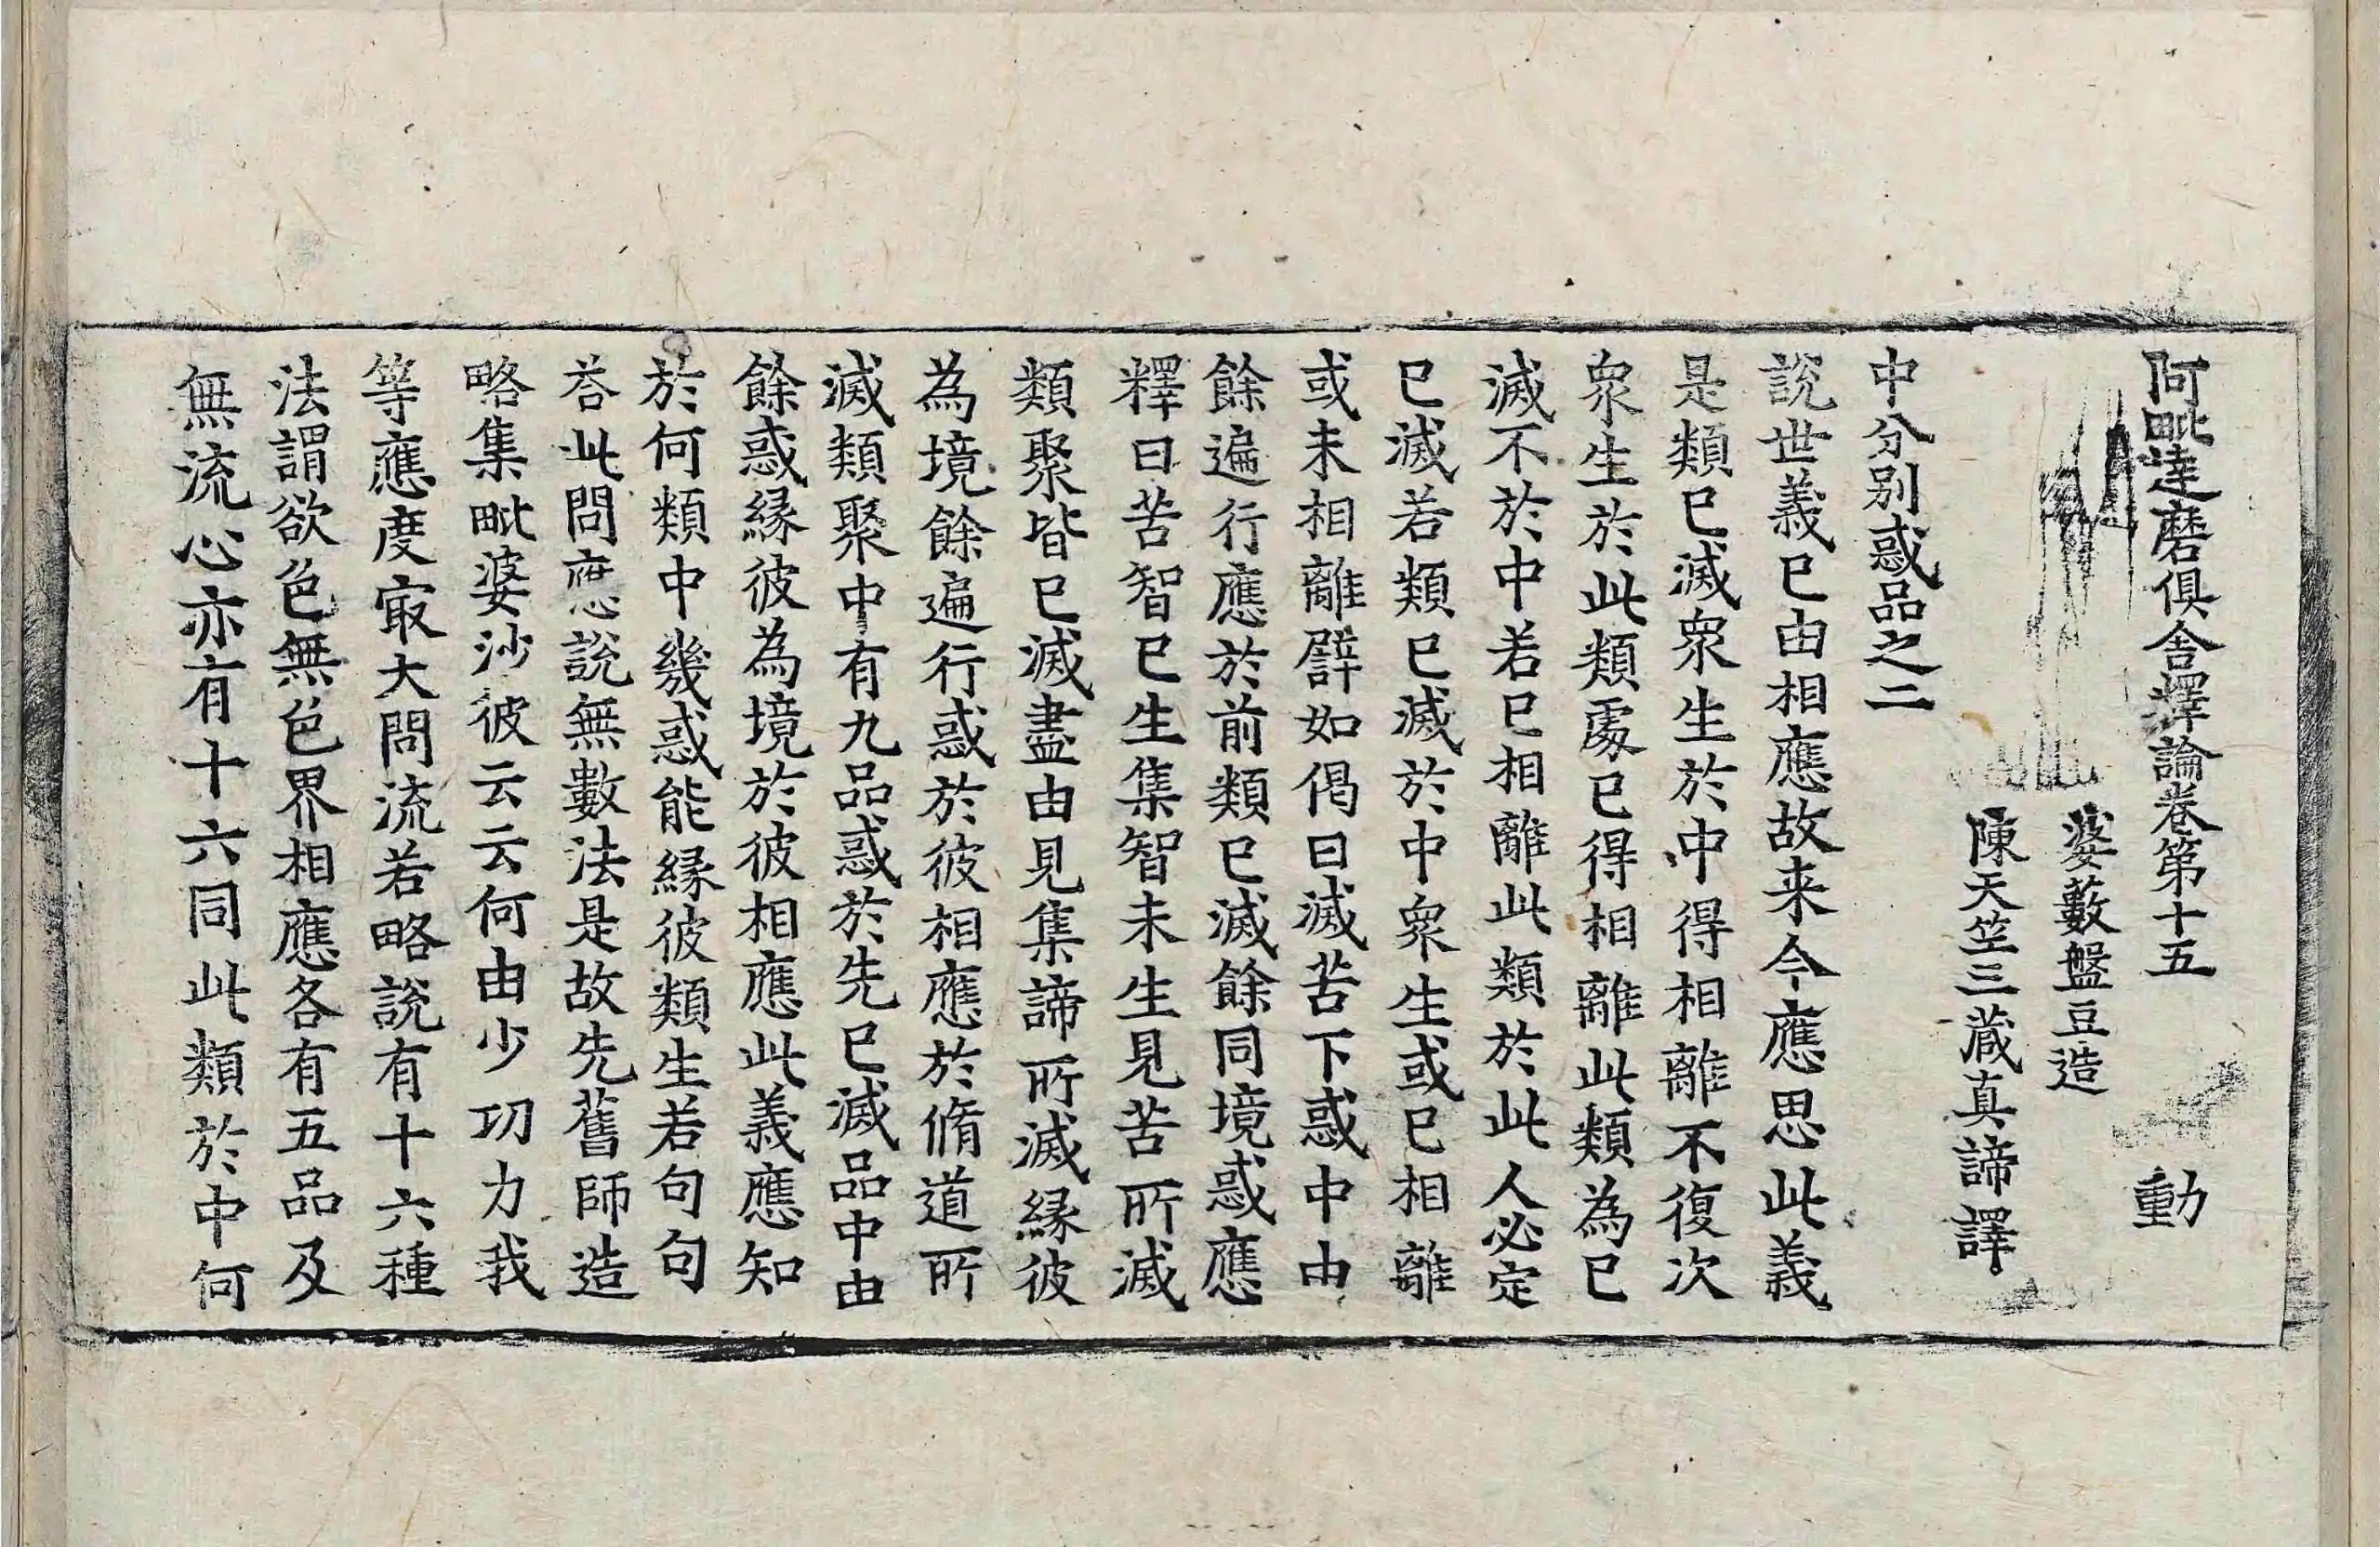 阿毗達磨俱舍釋論卷第十五　動
婆藪盤豆造
陳天竺三藏真諦譯
中分別惑品之二
說世義已由相應故来今應思此義
是類已滅衆生於中得相離不復次
衆生於此類處已得相離此類為已
滅不於中若已相離此類於此人必定
已滅若類已滅於中衆生或已相離
或未相離譬如偈曰滅苦下惑中由
餘遍行應於前類已滅餘同境惑應
釋曰苦智已生集智未生見苦所滅
類聚皆已滅盡由見集諦所滅緣彼
為境餘遍行惑於彼相應於脩道所
滅類聚中有九品惑於先已滅品中由
餘惑緣彼為境於彼相應此義應知
於何類中幾惑能緣彼類生若句句
荅此問應說無數法是故先舊師造
略集毗婆沙彼云云何由少功力我
等應度㝡大問流若略說有十六種
法謂欲色無色界相應各有五品及
無流心亦有十六同此類於中何